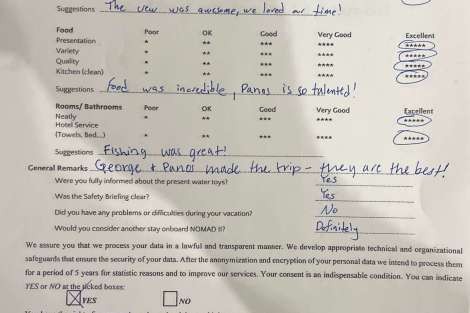 Suggestions The vew was awesome, we loved our time!
Food Poor OK Good Very Good Excellent
Presentation * ** *** **** *****
Variety * ** *** **** *****
Quality * ** *** **** *****
Kitchen (clean) * ** *** **** *****
Suggestions Food was incredible, Panos is so talented!
Rooms/ Bathrooms Poor OK Good Very Good Excellent
Neatly * ** *** **** *****
Hotel Service
(Towels, Bed...) * ** *** **** *****
Suggestions Fishing was great!
General Remarks George & Panos made the trip - they are the best!
Were you fully informed about the present water toys? Yes
Was the Safety Briefing clear? Yes
Did you have any problems or difficulties during your vacation? No
Would you consider another stay onboard NOMAD II? Definitely
We assure you that we process your data in a lawful and transparent manner. We develop appropriate technical and organizational
safeguards that ensure the security of your data. After the anonymization and encryption of your personal data we intend to process them
for a period of 5 years for statistic reasons and to improve our services. Your consent is an indispensable condition. You can indicate
YES or NO at the picked boxes:
YES NO